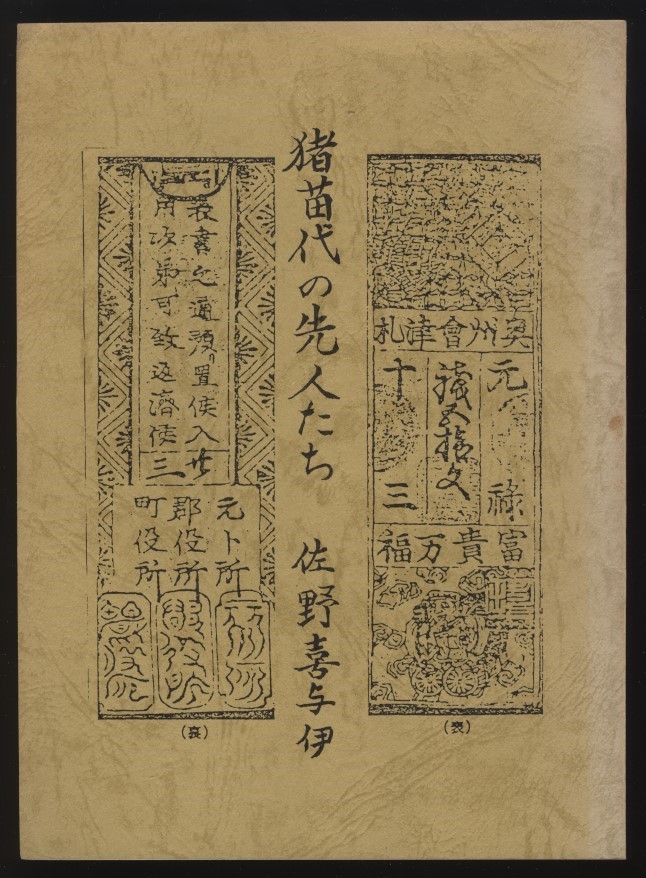 奥州會津札
元禄
銭五拾文
十三
富貴万福
(表)
猪苗代の先人たち 佐野喜与伊
表書之通預り置候入
用次第可致返済候
廿三
元〆所
郡役所
町役所
(裏)